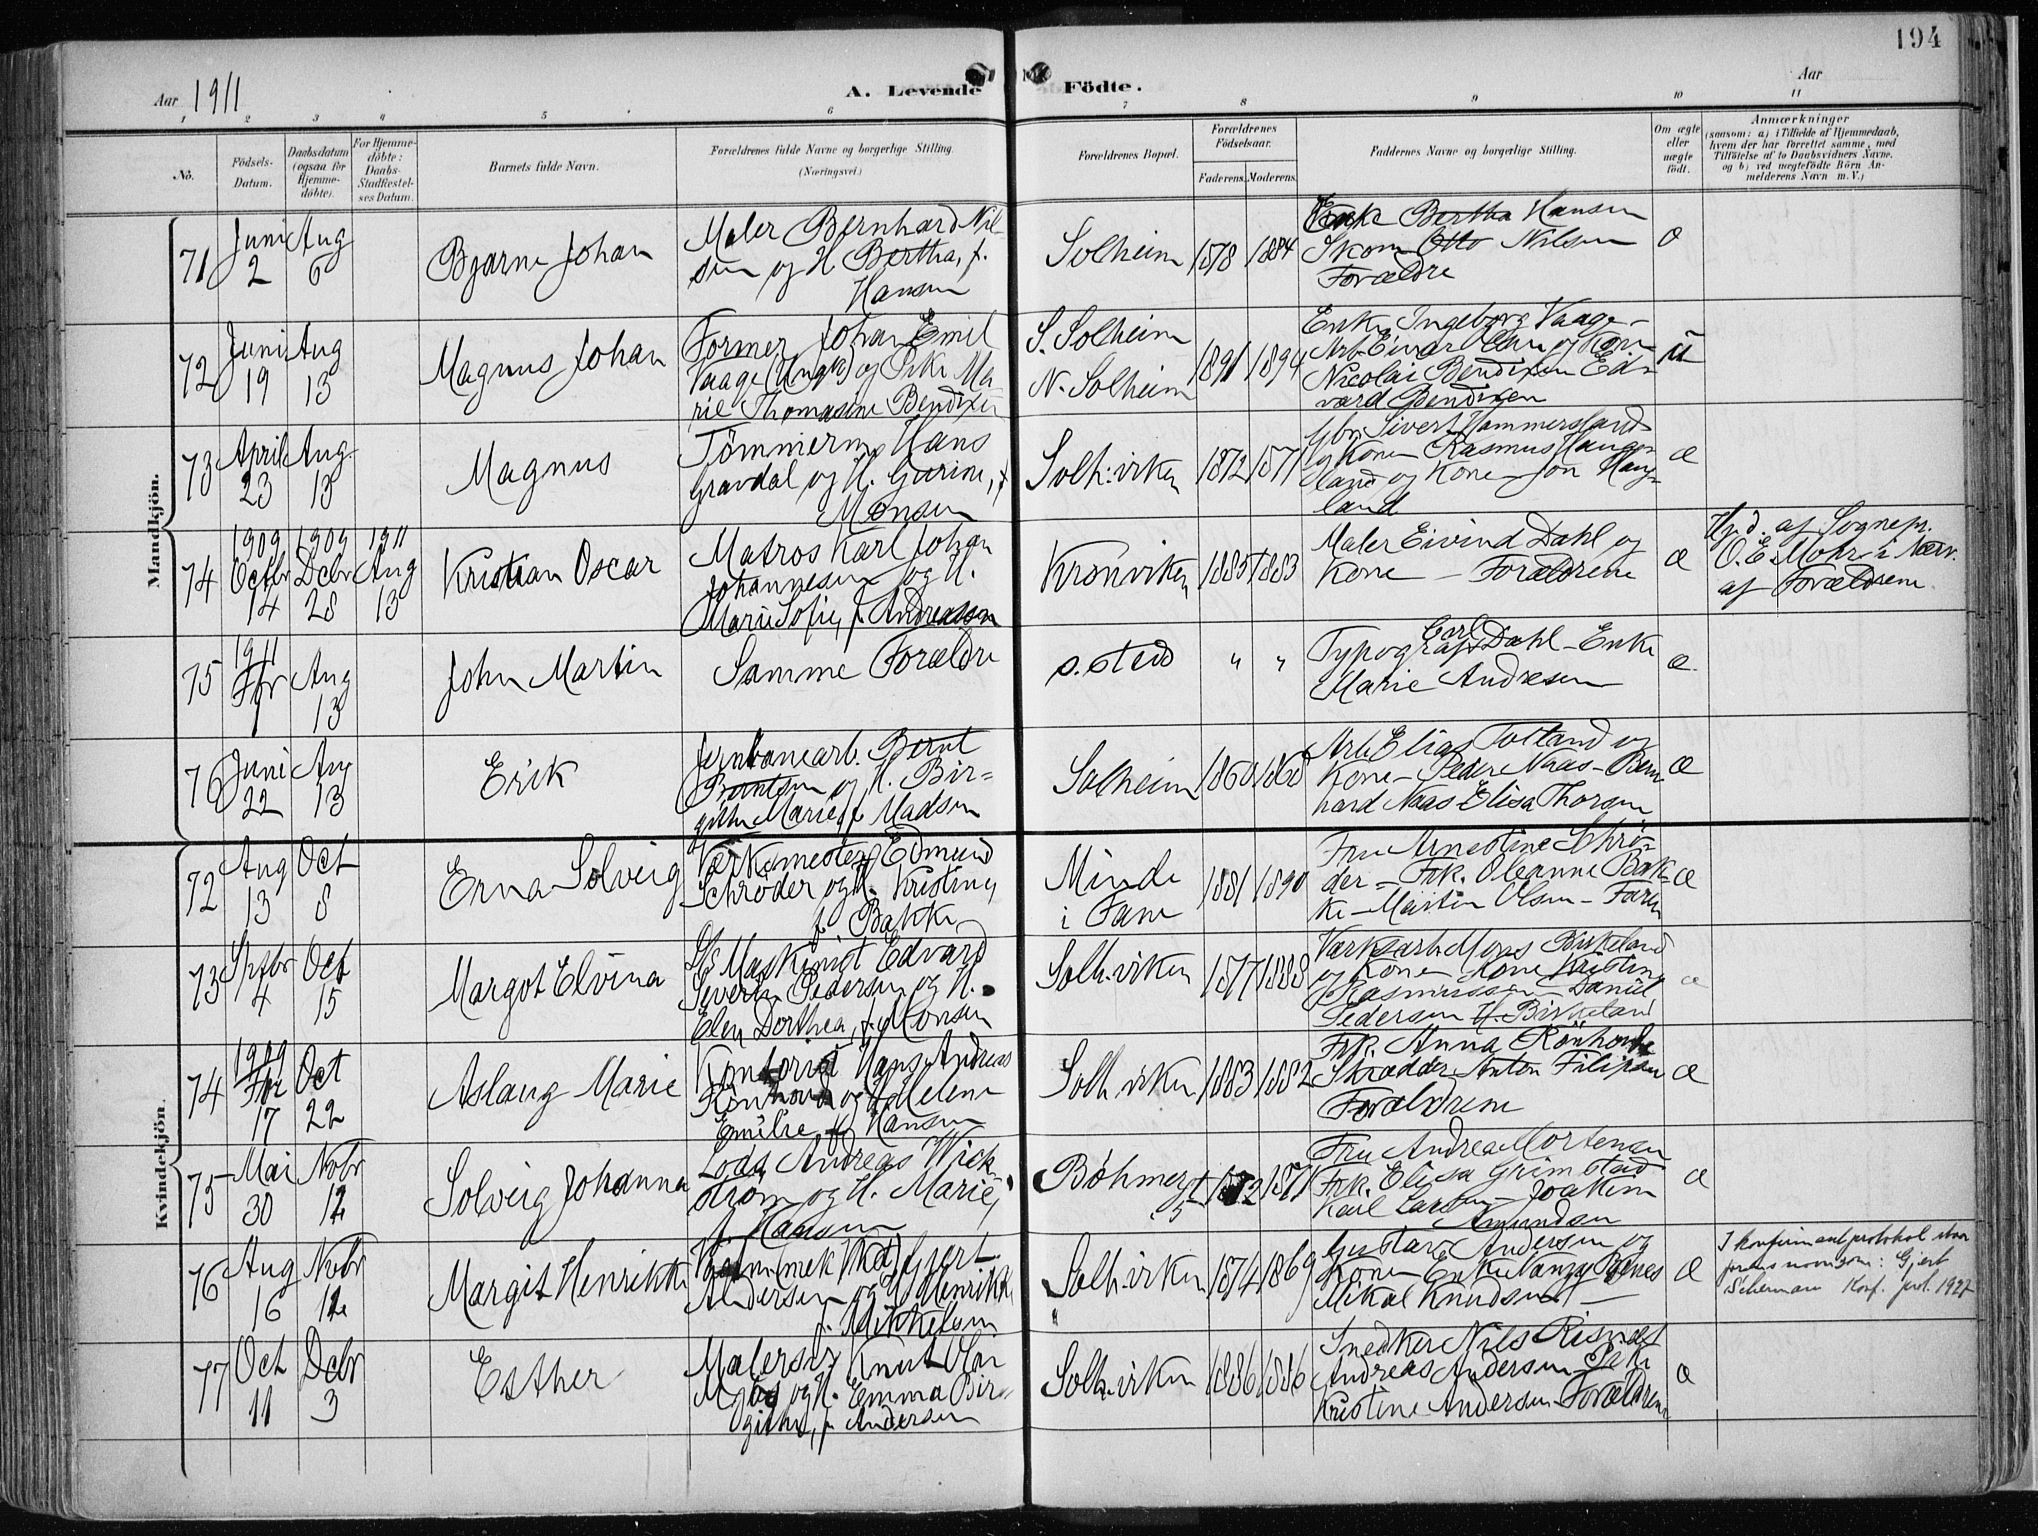 194
Aar 1911
A. Levende Födte.
Aar
1 2 3 4 5 6 7 8 9 10 11
No.
Födsels-Datum.
Daabsdatum (ogsaa for Hjemme-döbte).
For Hjemme-döbte: Daabs-Stadfæstel-ses Datum.
Barnets fulde Navn.
Forældrenes fulde Navne og borgerlige Stilling.
(Næringsvei.)
Forældrenes Bopæl.
Forældrenes Födselsaar.
Faderens. Moderens.
Faddernes Navne og borgerlige Stilling.
Om ægte eller uægte födt.
Anmærkninger
(saasom: a) i Tilfælde af Hjemmedaab, hvem der har forrettet samme, med Tilföielse af to Daabsvidners Navne, og b) ved uægtefödte Börn Anmelderens Navn m. V.)
Mandkjön.
71 Juni 2 Aug 6 Bjarne Johan
Maler Bernhard Nil
sen og H. Bertha, f.
Hansen
Solheim 1878 1884
Enke Bertha Hansen
Skom. Otto Nilsen
Forældre
72 Juni 19 Aug 13 Magnus Johan
Former Johan Emil
Vaage (Ungk) og Pike Ma
rie Thomasine Bendixen
S. Solheim
N. Solheim
1891 1894
Enke Ingeborg Vaage -
Arb. Einar og Kone
Nicolai Bendixen Ed-
vard Bendixen
u
73 April 23 Aug 13 Magnus
Tömmerm. Hans
Gravdal og H. Gurine, f
Monsen
Solh:viken 1872 1871
Gbr. Sivert Hammersland
og Kone Rasmus Hauge
land og Kone - Jon Haug-
land
æ
74 1909 Octbr 14 1909 Dcbr 28 1911 Aug 13 Kristian Oscar
Matros Karl Johan
Johannesen og H.
Marie Sofie, f. Andreassen
Kronviken 1885 1883
Maler Eivind Dahl og
Kone - Forældrene
æ
Hjd. af Sognepr.
O. E. Mohr i Nærv.
af Forældrene
75 1911 Fbr 1 Aug 13 John Martin
Samme Forældre
s. sted " "
Typograf Carl Dahl - Enke
Marie Andresen
æ
76 Juni 22 Aug 13 Erik
Jernbanearb. Bernt
Berntsen og H. Bir-
githe Marie, f. Madsen
Solheim 1860 1868
Arb. Elias Totland og
Kone - Peder Naas - Bern
hard Naas Elisa Thorsen
æ
Kvindekjön.
72 Aug 13 Oct 8 Erna Solveig
Værkmester Edmund
Schrøder og H. Kristine,
f. Bakke
Minde
i Fane
1881 1890
Fru Arnestine Schrø-
der - Frk. Oleanne Bak-
ke - Martin Olsen - Faren
æ
73 Septbr 4 Oct 15 Margot Elvina
Maskinist Edvard
Severin Pedersen og H.
Elen Dorthea, f. Monsen
Solh:viken 1877 1888
Værksarb. Mons Birkeland
og Kone - Kone Kristine
Rasmussen - Daniel
Pedersen H. Birkeland
æ
74 1909 Fbr 17 Oct 22 Aslaug Marie
Kontorist Hans Andreas
Rönhovde og H. Helene
Emilie f. Hansen
Solh.viken 1883 1882
Frk. Anna Rönhovde
Skrædder Anton Filipsen
Forældrene
æ
75 Mai 30 Nobr 12 Solveig Johanna
Lods Andreas Wick
strøm og H. Marie,
f. Hansen
Bøhmerst 5 1872 1871
Fru Andrea Mortensen
Frk. Elisa Grimstad
Karl Larsen - Joakim
Amundsen
æ
76 Aug 16 Nobr 12 Margit Henrikke
Gjert
Andersen og H. Henrikke
f. Mikkelsen
Solh.viken 1874 1869
Gustav Andersen og
Kone Enke
Mikal Knudsen -
æ
I konfirmantprotokol staar
farens navn som: Gjert
Scherman Konf. prl. 1927
77 Oct 11 Dcbr 3 Esther
Malersv. Knut Olai
og H. Emma Bir
githe, f. Andersen
Solh.viken 1886 1886
Snedker Nils Risnæs
Andreas Andersen Pike
Kristine Andersen - Forældrene
æ